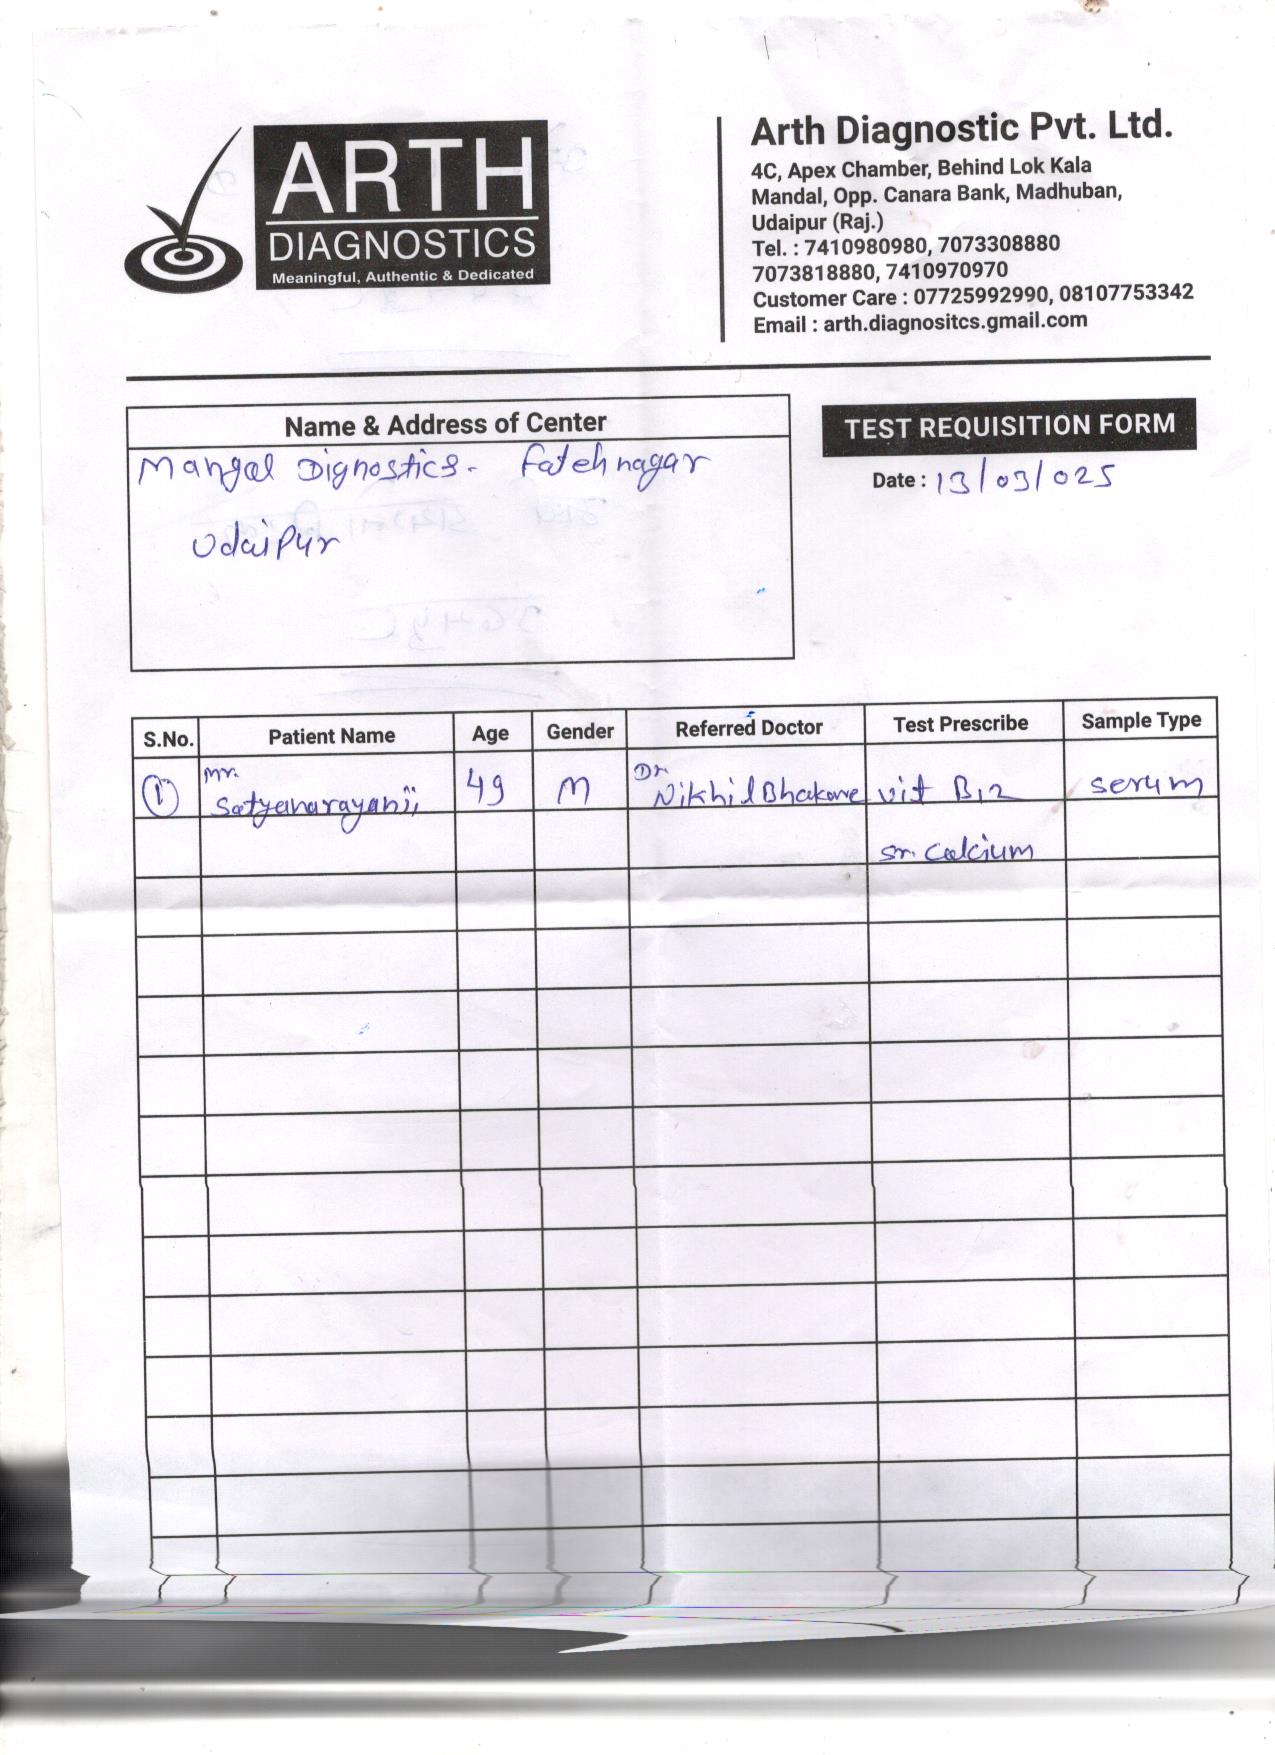 ARTH
DIAGNOSTICS
Meaningful, Authentic & Dedicated
Arth Diagnostic Pvt. Ltd.
4C, Apex Chamber, Behind Lok Kala
Mandal, Opp. Canara Bank, Madhuban,
Udaipur (Raj.)
Tel. : 7410980980, 7073308880
7073818880, 7410970970
Customer Care : 07725992990, 08107753342
Email : arth.diagnositcs.gmail.com
Name & Address of Center
Mangal Dignostics - Fatehnagar
Udaipur
TEST REQUISITION FORM
Date : 13/03/025
S.No. Patient Name Age Gender Referred Doctor Test Prescribe Sample Type
1 Mr. Satyanarayanji 49 M Dr Nikhil Bhakare vit B12 serum
sr. calcium